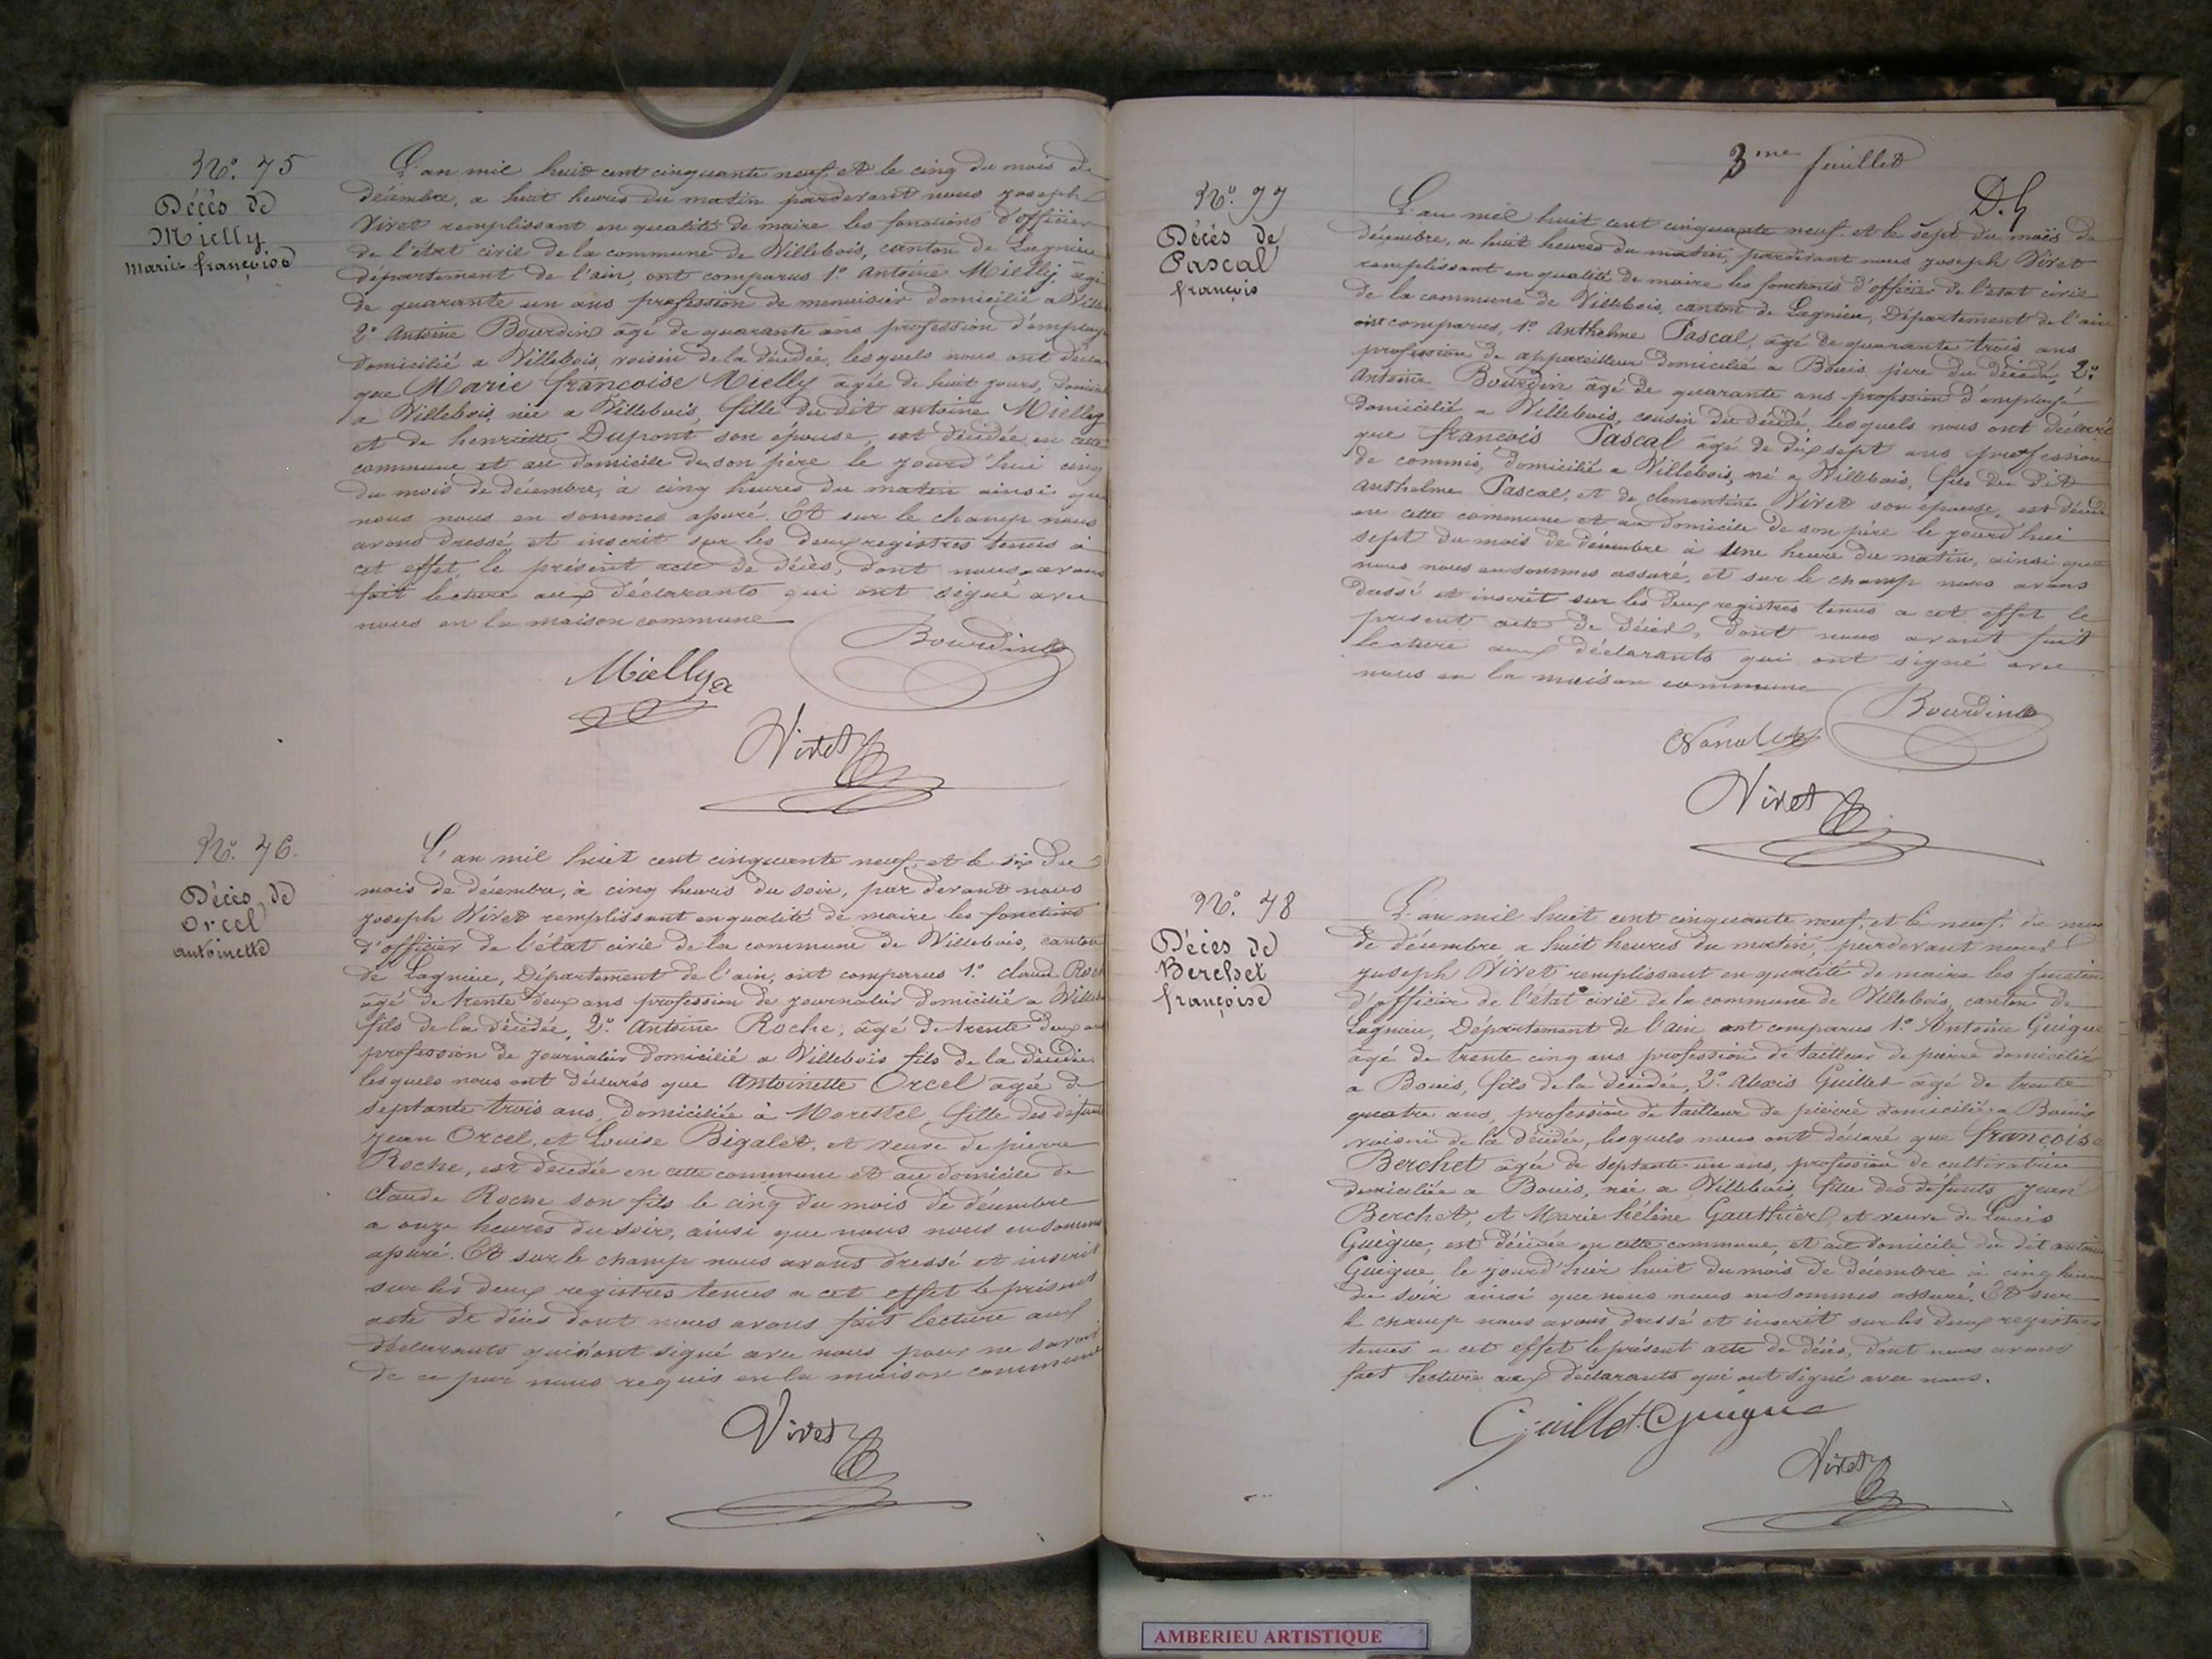 No. 75
Décès de
Mielly
Marie françoise
L'an mil huit cent cinquante neuf et le cinq du mois de
décembre, a huit heures du matin pardevant nous Joseph
Vivet remplissant en qualité de maire les fonctions d'officier
de l'état civil de la commune de Villebois, canton de Lagnieu
département de l'ain, ont comparus 1.° Antoine Mielly, âgé
de quarante un ans profession de menuisier domicilié a Villeb
2.° Antoine Bourdin âgé de quarante ans profession d'employé
domicilié a Villebois, voisin de la décédée, lesquels nous ont déclaré
que Marie françoise Mielly âgée de huit jours, domicil
a Villebois, née a Villebois, fille du dit antoine Mielly
et de henriette Dupont son épouse, est décédée en cette
commune et au domicile de son père le jourd'hui cinq
du mois de décembre, à cinq heures du matin ainsi que
nous nous en sommes assuré. Et sur le champ nous
avons dressé et inscrit sur les deux registres tenus à
cet effet, le présent acte de décès, dont nous avons
fait lecture aux déclarants qui ont signé avec
nous en la maison commune
Bourdin
Mielly
Vivet
No. 76.
Décès de
Orcel
antoinette
L'an mil huit cent cinquante neuf, et le six du
mois de décembre, à cinq heures du soir, par devant nous
Joseph Vivet remplissant en qualité de maire les fonctions
d'officier de l'état civil de la commune de Villebois, canton
de Lagnieu, Département de l'ain, ont comparus 1.° claude Roch
âgé de trente deux ans profession de journalier domicilié a Villeb
fils de la décédée, 2.° Antoine Roche, âgé de trente deux ans
profession de journalier domicilié a Villebois fils de la décédée
lesquels nous ont déclarés que Antoinette Orcel âgée de
septante trois ans, domiciliée à Morestel, fille des défunts
Jean Orcel, et Louise Bigalet, et veuve de pierre
Roche, est décédée en cette commune et au domicile de
claude Roche son fils le cinq du mois de décembre
a onze heures du soir, ainsi que nous nous en sommes
assuré. Et sur le champ nous avons dressé et inscrit
sur les deux registres tenus a cet effet le présent
acte de décès dont nous avons fait lecture aux
déclarants qui n'ont signé avec nous pour ne savoir
de ce par nous requis en la maison commune
Vivet
3me feuillet
D. h
No. 77
Décès de
Pascal
françois
L'an mil huit cent cinquante neuf et le sept du mois de
décembre, a huit heures du matin, pardevant nous Joseph Vivet
remplissant en qualité de maire les fonctions d'officier de l'état civil
de la commune de Villebois, canton de Lagnieu, Département de l'ain
ont comparus, 1.° Anthelme Pascal, âgé de quarante trois ans
profession de appareilleur domicilié a Bouis père du décédé, 2.°
Antoine Bourdin âgé de quarante ans profession d'employé
domicilié a Villebois, cousin du décédé, lesquels nous ont déclaré
que françois Pascal âgé de dix sept ans profession
de commis, domicilié a Villebois, né a Villebois, fils du dit
Anthelme Pascal, et de clementine Vivet son épouse, est décédé
en cette commune et au domicile de son père le jourd'hui
sept du mois de décembre à une heure du matin, ainsi que
nous nous en sommes assuré, et sur le champ nous avons
dressé et inscrit sur les deux registres tenus a cet effet le
présent acte de décès, dont nous avons fait
lecture aux déclarants qui ont signé avec
nous en la maison commune
Bourdin
Vivet
No. 78
Décès de
Berchet
françoise
L'an mil huit cent cinquante neuf, et le neuf du mois
de décembre a huit heures du matin, pardevant nous
Joseph Vivet remplissant en qualité de maire les fonction
d'officier de l'état civil de la commune de Villebois, canton de
Lagnieu, Département de l'ain ont comparus 1.° Antoine Guigue
âgé de trente cinq ans profession de tailleur de pierre domicilié
a Bouis, fils de la décédée, 2.° Alexis Guillet âgé de trente
quatre ans, profession de tailleur de pierre domicilié a Bouis
voisin de la décédée, lesquels nous ont déclaré que françoise
Berchet âgée de septante un ans, profession de cultivatrice
domiciliée a Bouis, née a Villebois, fille des défunts Jean
Berchet, et Marie hélène Gauthier, et veuve de Louis
Guigue, est décédée en cette commune, et au domicile du dit antoine
Guigue le jourd'hier huit du mois de décembre à cinq heures
du soir ainsi que nous nous en sommes assuré. Et sur
le champ nous avons dressé et inscrit sur les deux registres
tenus a cet effet le présent acte de décès, dont nous avons
fait lecture aux déclarants qui ont signé avec nous.
Guillet Guigue
Vivet
AMBERIEU ARTISTIQUE